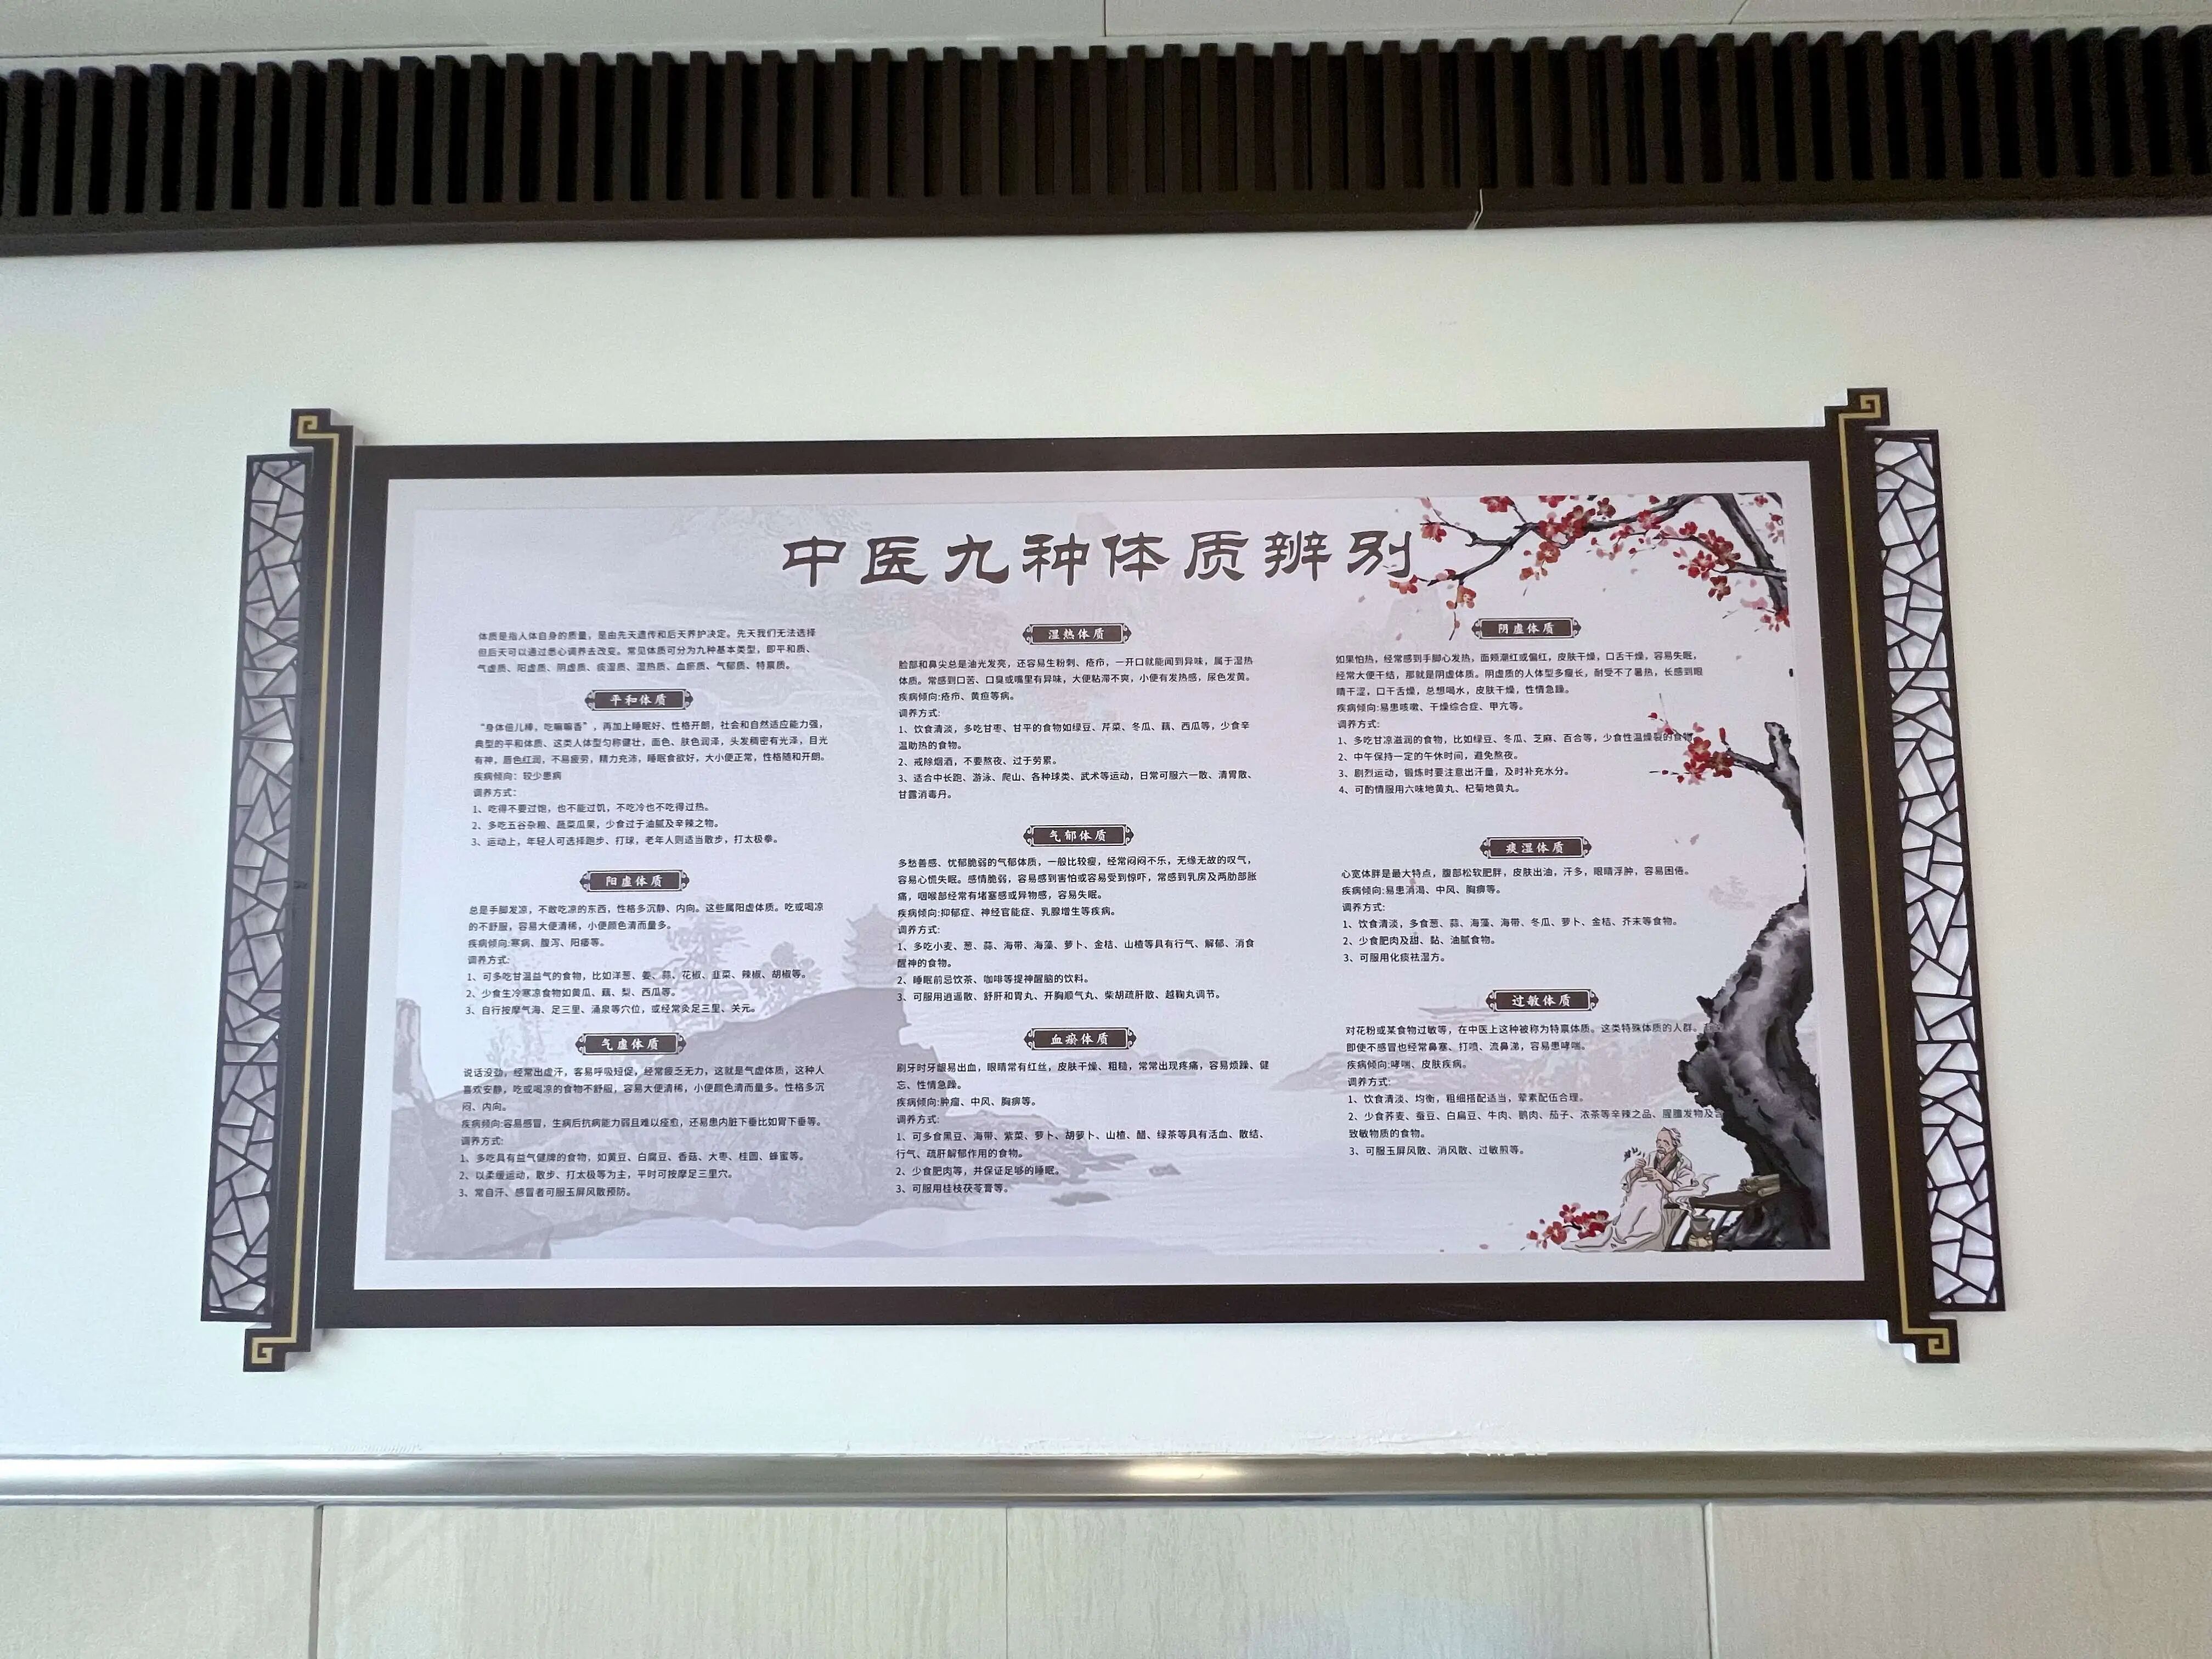 中医九种体质辨别
体质是指人体自身的质量，是由先天遗传和后天养护决定。先天我们无法选择
但后天可以通过悉心调养去改变。常见体质可分为九种基本类型，即平和质、
气虚质、阳虚质、阴虚质、痰湿质、湿热质、血瘀质、气郁质、特禀质。
平和体质
“身体倍儿棒，吃嘛嘛香”，再加上睡眠好、性格开朗，社会和自然适应能力强，
典型的平和体质、这类人体型匀称健壮，面色、肤色润泽，头发稠密有光泽，目光
有神，唇色红润，不易疲劳，精力充沛，睡眠食欲好，大小便正常，性格随和开朗。
疾病倾向：较少患病
调养方式：
1、吃得不要过饱，也不能过饥，不吃冷也不吃得过热。
2、多吃五谷杂粮、蔬菜瓜果，少食过于油腻及辛辣之物。
3、运动上，年轻人可选择跑步、打球，老年人则适当散步，打太极拳。
阳虚体质
总是手脚发凉，不敢吃凉的东西，性格多沉静、内向。这些属阳虚体质。吃或喝凉
的不舒服，容易大便清稀，小便颜色清而量多。
疾病倾向:寒病、腹泻、阳痿等。
调养方式:
1、可多吃甘温益气的食物，比如洋葱、姜、蒜、花椒、韭菜、辣椒、胡椒等。
2、少食生冷寒凉食物如黄瓜、藕、梨、西瓜等。
3、自行按摩气海、足三里、涌泉等穴位，或经常灸足三里、关元。
气虚体质
说话没劲，经常出虚汗，客易呼吸短促，经常疲乏无力，这就是气虚体质，这种人
喜欢安静，吃或喝凉的食物不舒服，容易大便清稀，小便颜色清而量多。性格多沉
闷、内向。
疾病倾向:容易感冒，生病后抗病能力弱且难以痊愈，还易患内脏下垂比如胃下垂等。
调养方式:
1、多吃具有益气健脾的食物，如黄豆、白腐豆、香菇、大枣、桂圆、蜂蜜等。
2、以柔缓运动，散步、打太极等为主，平时可按摩足三里穴。
3、常自汗、感冒者可服玉屏风散预防。
湿热体质
脸部和鼻尖总是油光发亮，还容易生粉刺、疮疖，一开口就能闻到异味，属于湿热
体质。常感到口苦、口臭或嘴里有异味，大便粘滞不爽，小便有发热感，尿色发黄。
疾病倾向:疮疖、黄疸等病。
调养方式:
1、饮食清淡，多吃甘枣、甘平的食物如绿豆、芹菜、冬瓜、藕、西瓜等，少食辛
温助热的食物。
2、戒除烟酒，不要熬夜、过于劳累。
3、适合中长跑、游泳、爬山、各种球类、武术等运动，日常可服六一散、清胃散、
甘露消毒丹。
气郁体质
多愁善感、忧郁脆弱的气郁体质，一般比较瘦，经常闷闷不乐，无缘无故的叹气，
容易心慌失眠。感情脆弱，容易感到害怕或容易受到惊吓，常感到乳房及两肋部胀
痛，咽喉部经常有堵塞感或异物感，容易失眠。
疾病倾向:抑郁症、神经官能症、乳腺增生等疾病。
调养方式:
1、多吃小麦、葱、蒜、海带、海藻、萝卜、金桔、山楂等具有行气、解郁、消食
醒神的食物。
2、睡眠前忌饮茶、咖啡等提神醒脑的饮料。
3、可服用逍遥散、舒肝和胃丸、开胸顺气丸、柴胡疏肝散、越鞠丸调节。
血瘀体质
刷牙时牙龈易出血，眼睛常有红丝，皮肤干燥、粗糙，常常出现疼痛，容易烦躁、健
忘、性情急躁。
疾病倾向:肿瘤、中风、胸痹等。
调养方式:
1、可多食黑豆、海带、紫菜、萝卜、胡萝卜、山楂、醋、绿茶等具有活血、散结、
行气、疏肝解郁作用的食物。
2、少食肥肉等，并保证足够的睡眠。
3、可服用桂枝茯苓膏等。
阴虚体质
如果怕热，经常感到手脚心发热，面颊潮红或偏红，皮肤干燥，口舌干燥，容易失眠，
经常大便干结，那就是阴虚体质。阴虚质的人体型多瘦长，耐受不了暑热，长感到眼
睛干涩，口干舌燥，总想喝水，皮肤干燥，性情急躁。
疾病倾向:易患咳嗽、干燥综合症、甲亢等。
调养方式:
1、多吃甘凉滋润的食物，比如绿豆、冬瓜、芝麻、百合等，少食性温燥裂的食物
2、中午保持一定的午休时间，避免熬夜。
3、剧烈运动，锻炼时要注意出汗量，及时补充水分。
4、可酌情服用六味地黄丸、杞菊地黄丸。
痰湿体质
心宽体胖是最大特点，腹部松软肥胖，皮肤出油，汗多，眼睛浮肿，容易困倦。
疾病倾向:易患消渴、中风、胸痹等。
调养方式:
1、饮食清淡，多食葱、蒜、海藻、海带、冬瓜、萝卜、金桔、芥末等食物。
2、少食肥肉及甜、黏、油腻食物。
3、可服用化痰祛湿方。
过敏体质
对花粉或某食物过敏等，在中医上这种被称为特禀体质。这类特殊体质的人群。
即使不感冒也经常鼻塞、打喷、流鼻涕，容易患哮喘。
疾病倾向:哮喘、皮肤疾病。
调养方式:
1、饮食清淡、均衡，粗细搭配适当，荤素配伍合理。
2、少食荞麦、蚕豆、白扁豆、牛肉、鹅肉、茄子、浓茶等辛辣之品、腥膻发物及含
致敏物质的食物。
3、可服玉屏风散、消风散、过敏煎等。